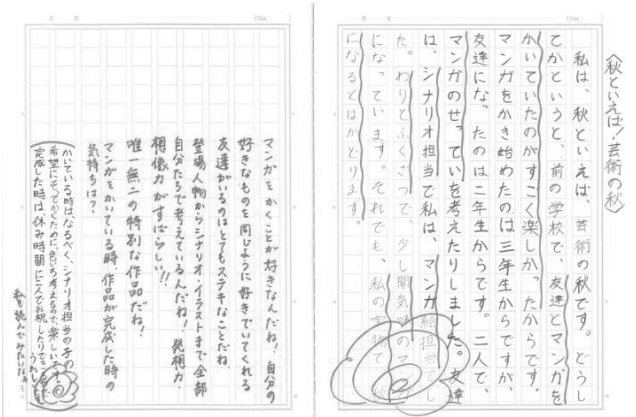 〈秋といえば！芸術の秋〉
私は、秋といえば、芸術の秋です。どうし
てかというと、前の学校で、友達とマンガを
かいていたのがすごく楽しかったからです。
マンガをかき始めたのは三年生からですが、
友達になったのは二年生からです。二人で、
マンガのせっていを考えたりしました。友達
は、シナリオ担当で私は、マンガ絵担当でし
た。わりとふくざつで、少し闇気味のマ
になっています。それでも、私の
になるとはかどります。
マンガをかくことが好きなんだね！自分の
好きなものを同じように好きでいてくれる
友達がいるのはとてもステキなことだね
登場人物からシナリオ・イラストまで全部
自分たちで考えているんだね！発想力、
想像力がすばらしい！！
唯一無二の特別な作品だね！
マンガをかいている時、作品が完成した時の
気持ちは？
かいている時は、なるべく、シナリオ担当の子の
希望にそってかくために、色いろ考えるので、楽しいです。
完成した時は、休み時間に二人でお祝したりできるので
うれしいです
私も読んでみたいなぁ〜